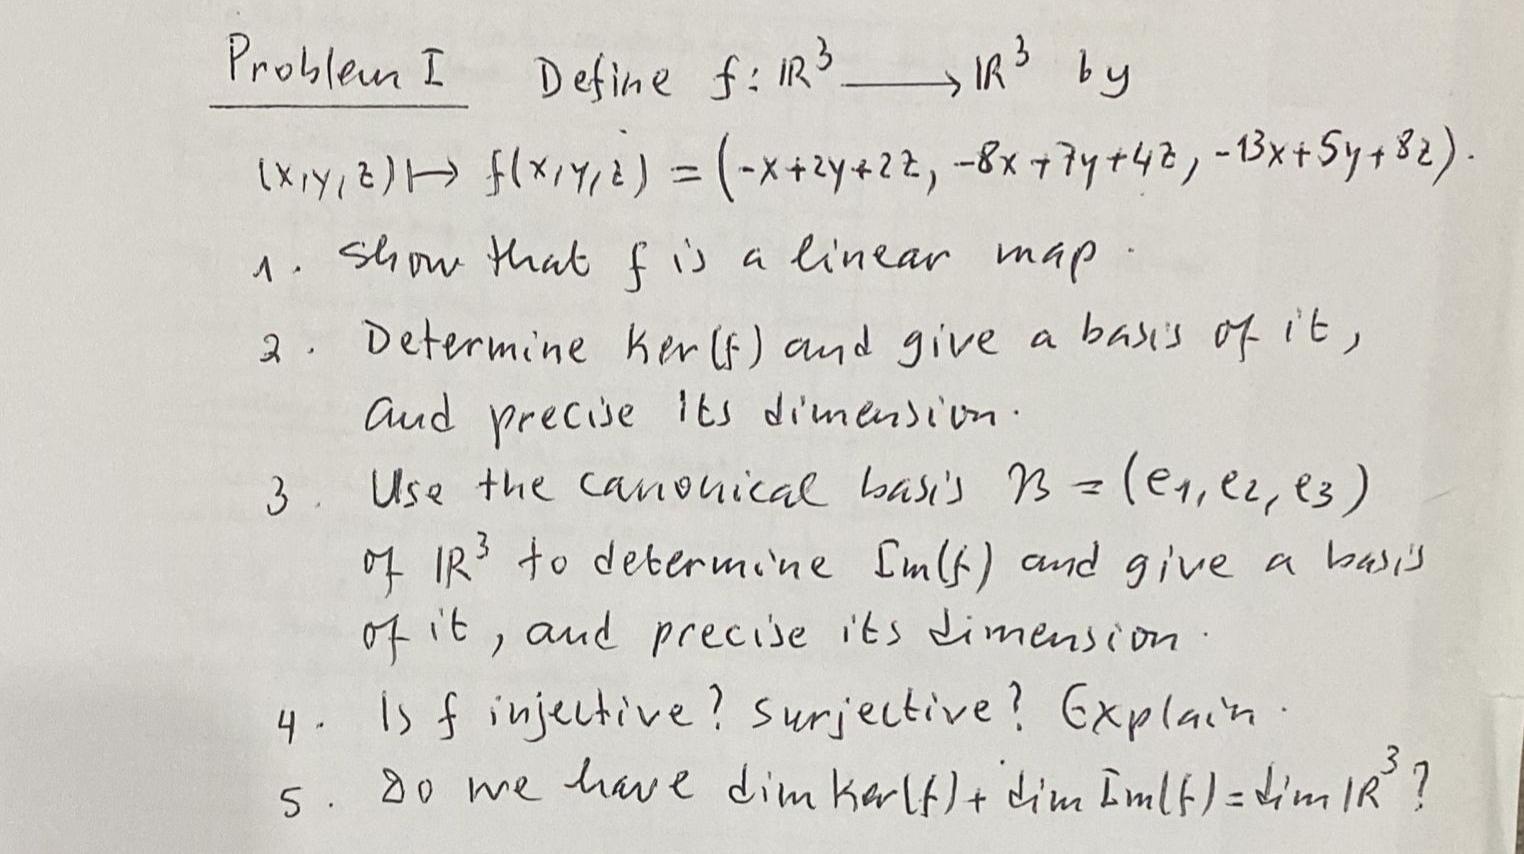 Problem I Define f: ℝ³ ⟶ ℝ³ by
(x,y,z) ↦ f(x,y,z) = (-x+2y+2z, -8x+7y+4z, -13x+5y+8z).
1. Show that f is a linear map.
2. Determine Ker(f) and give a basis of it,
and precise its dimension.
3. Use the canonical basis ℬ = (e₁, e₂, e₃)
of ℝ³ to determine Im(f) and give a basis
of it, and precise its dimension.
4. Is f injective? Surjective? Explain.
5. Do we have dim Ker(f) + dim Im(f) = dim ℝ³?